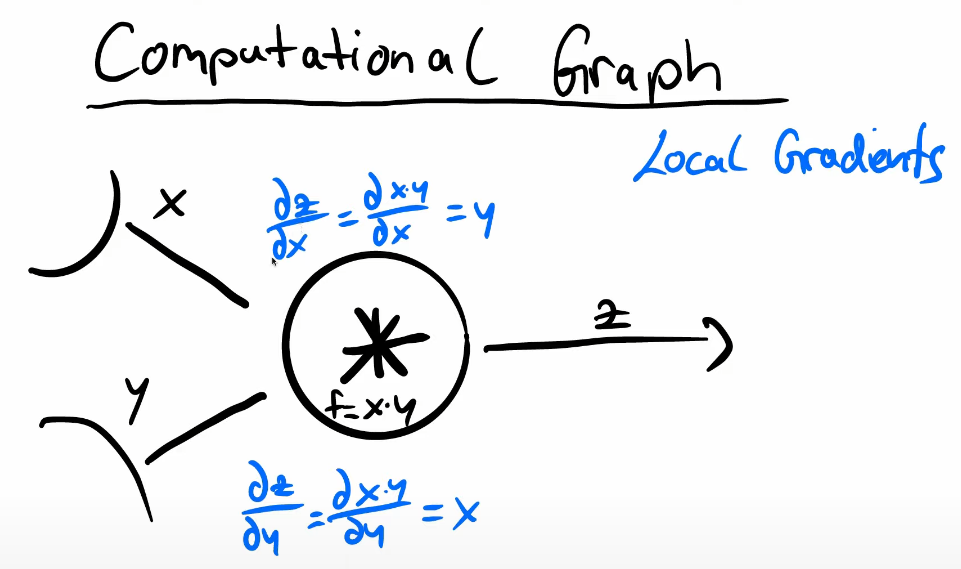 Computational Graph
Local Gradients
x
∂z/∂x = ∂x·y/∂x = y
z
*
f=x·y
y
∂z/∂y = ∂x·y/∂y = x